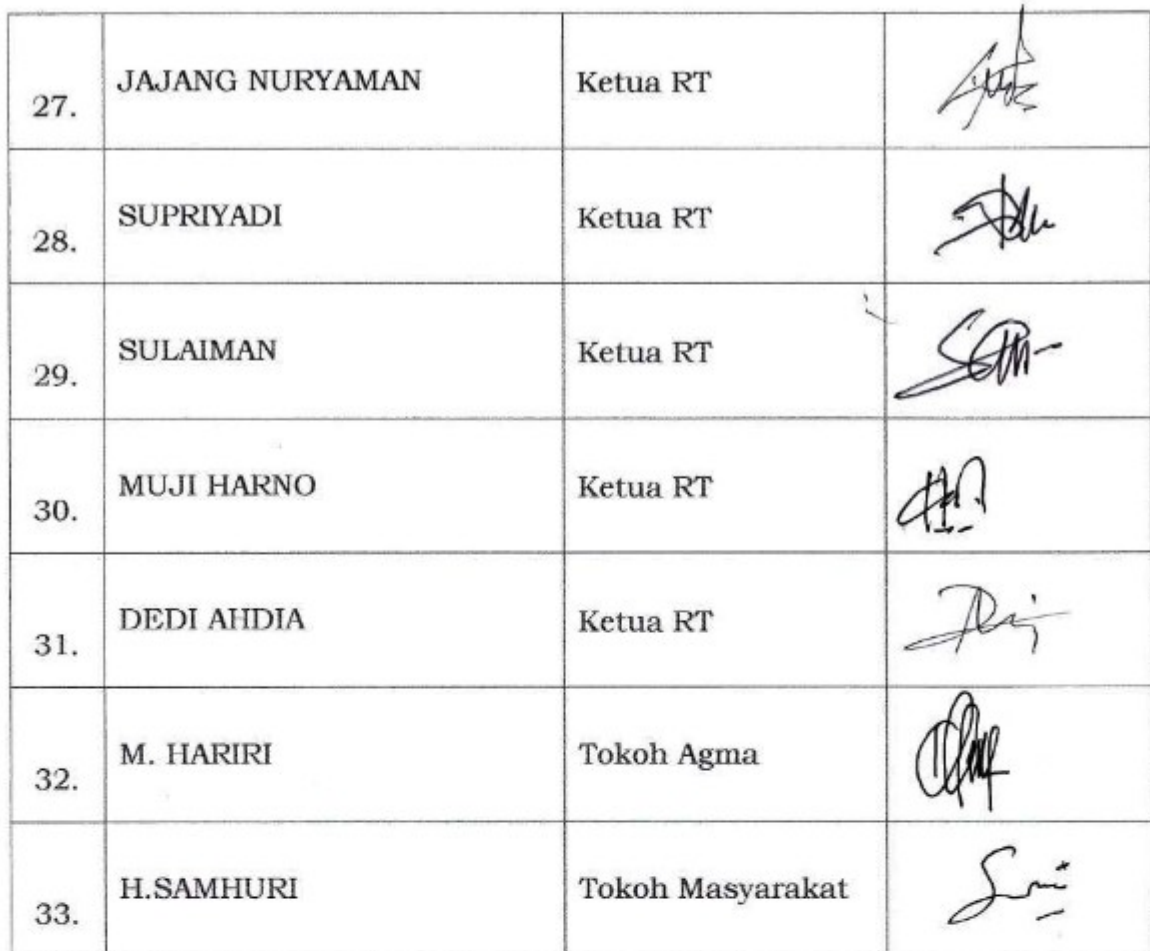 27. JAJANG NURYAMAN Ketua RT
28. SUPRIYADI Ketua RT
29. SULAIMAN Ketua RT
30. MUJI HARNO Ketua RT
31. DEDI AHDIA Ketua RT
32. M. HARIRI Tokoh Agma
33. H.SAMHURI Tokoh Masyarakat